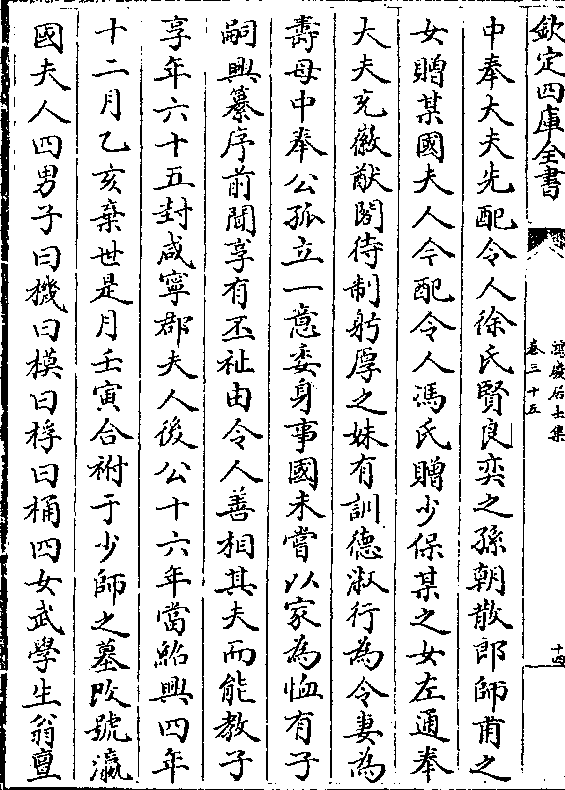 欽定四庫全書
鴻慶居士集
卷三十五
十四
中奉大夫先配令人徐氏賢良奕之孫朝散郎師甫之
女贈某國夫人今配令人馮氏贈少保某之女左通奉
大夫充徽猷閣待制躬厚之妹有訓德淑行為令妻為
壽母中奉公孤立一意委身事國未嘗以家為恤有子
嗣興纂序前聞享有丕祉由令人善相其夫而能教子
享年六十五封咸寧郡夫人後公十六年當紹興四年
十二月乙亥棄世是月壬寅合祔于少師之墓改號瀛
國夫人四男子曰機曰模曰桴曰桶四女武學生翁亶